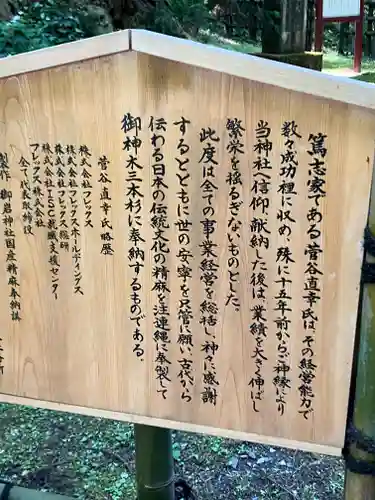 篤志家である菅谷直幸氏は、その経営能力で
数々成功裡に収め、殊に十五年前からご神縁により
当神社へ信仰、献納した後は、業績を大きく伸ばし
繁栄を揺るぎないものとした。
此度は全ての事業経営を総括し、神々に感謝
するとともに世の安寧を只管に願い、古代から
伝わる日本の伝統文化の精麻を注連縄に奉製して
御神木三本杉に奉納するものである。
菅谷直幸氏略歴
株式会社フレックス
株式会社フレックスホールディングス
株式会社フレックス総研
株式会社TSC就職支援センター
フレックス株式会社
全て代表取締役
製作 御岩神社国産精麻奉納講